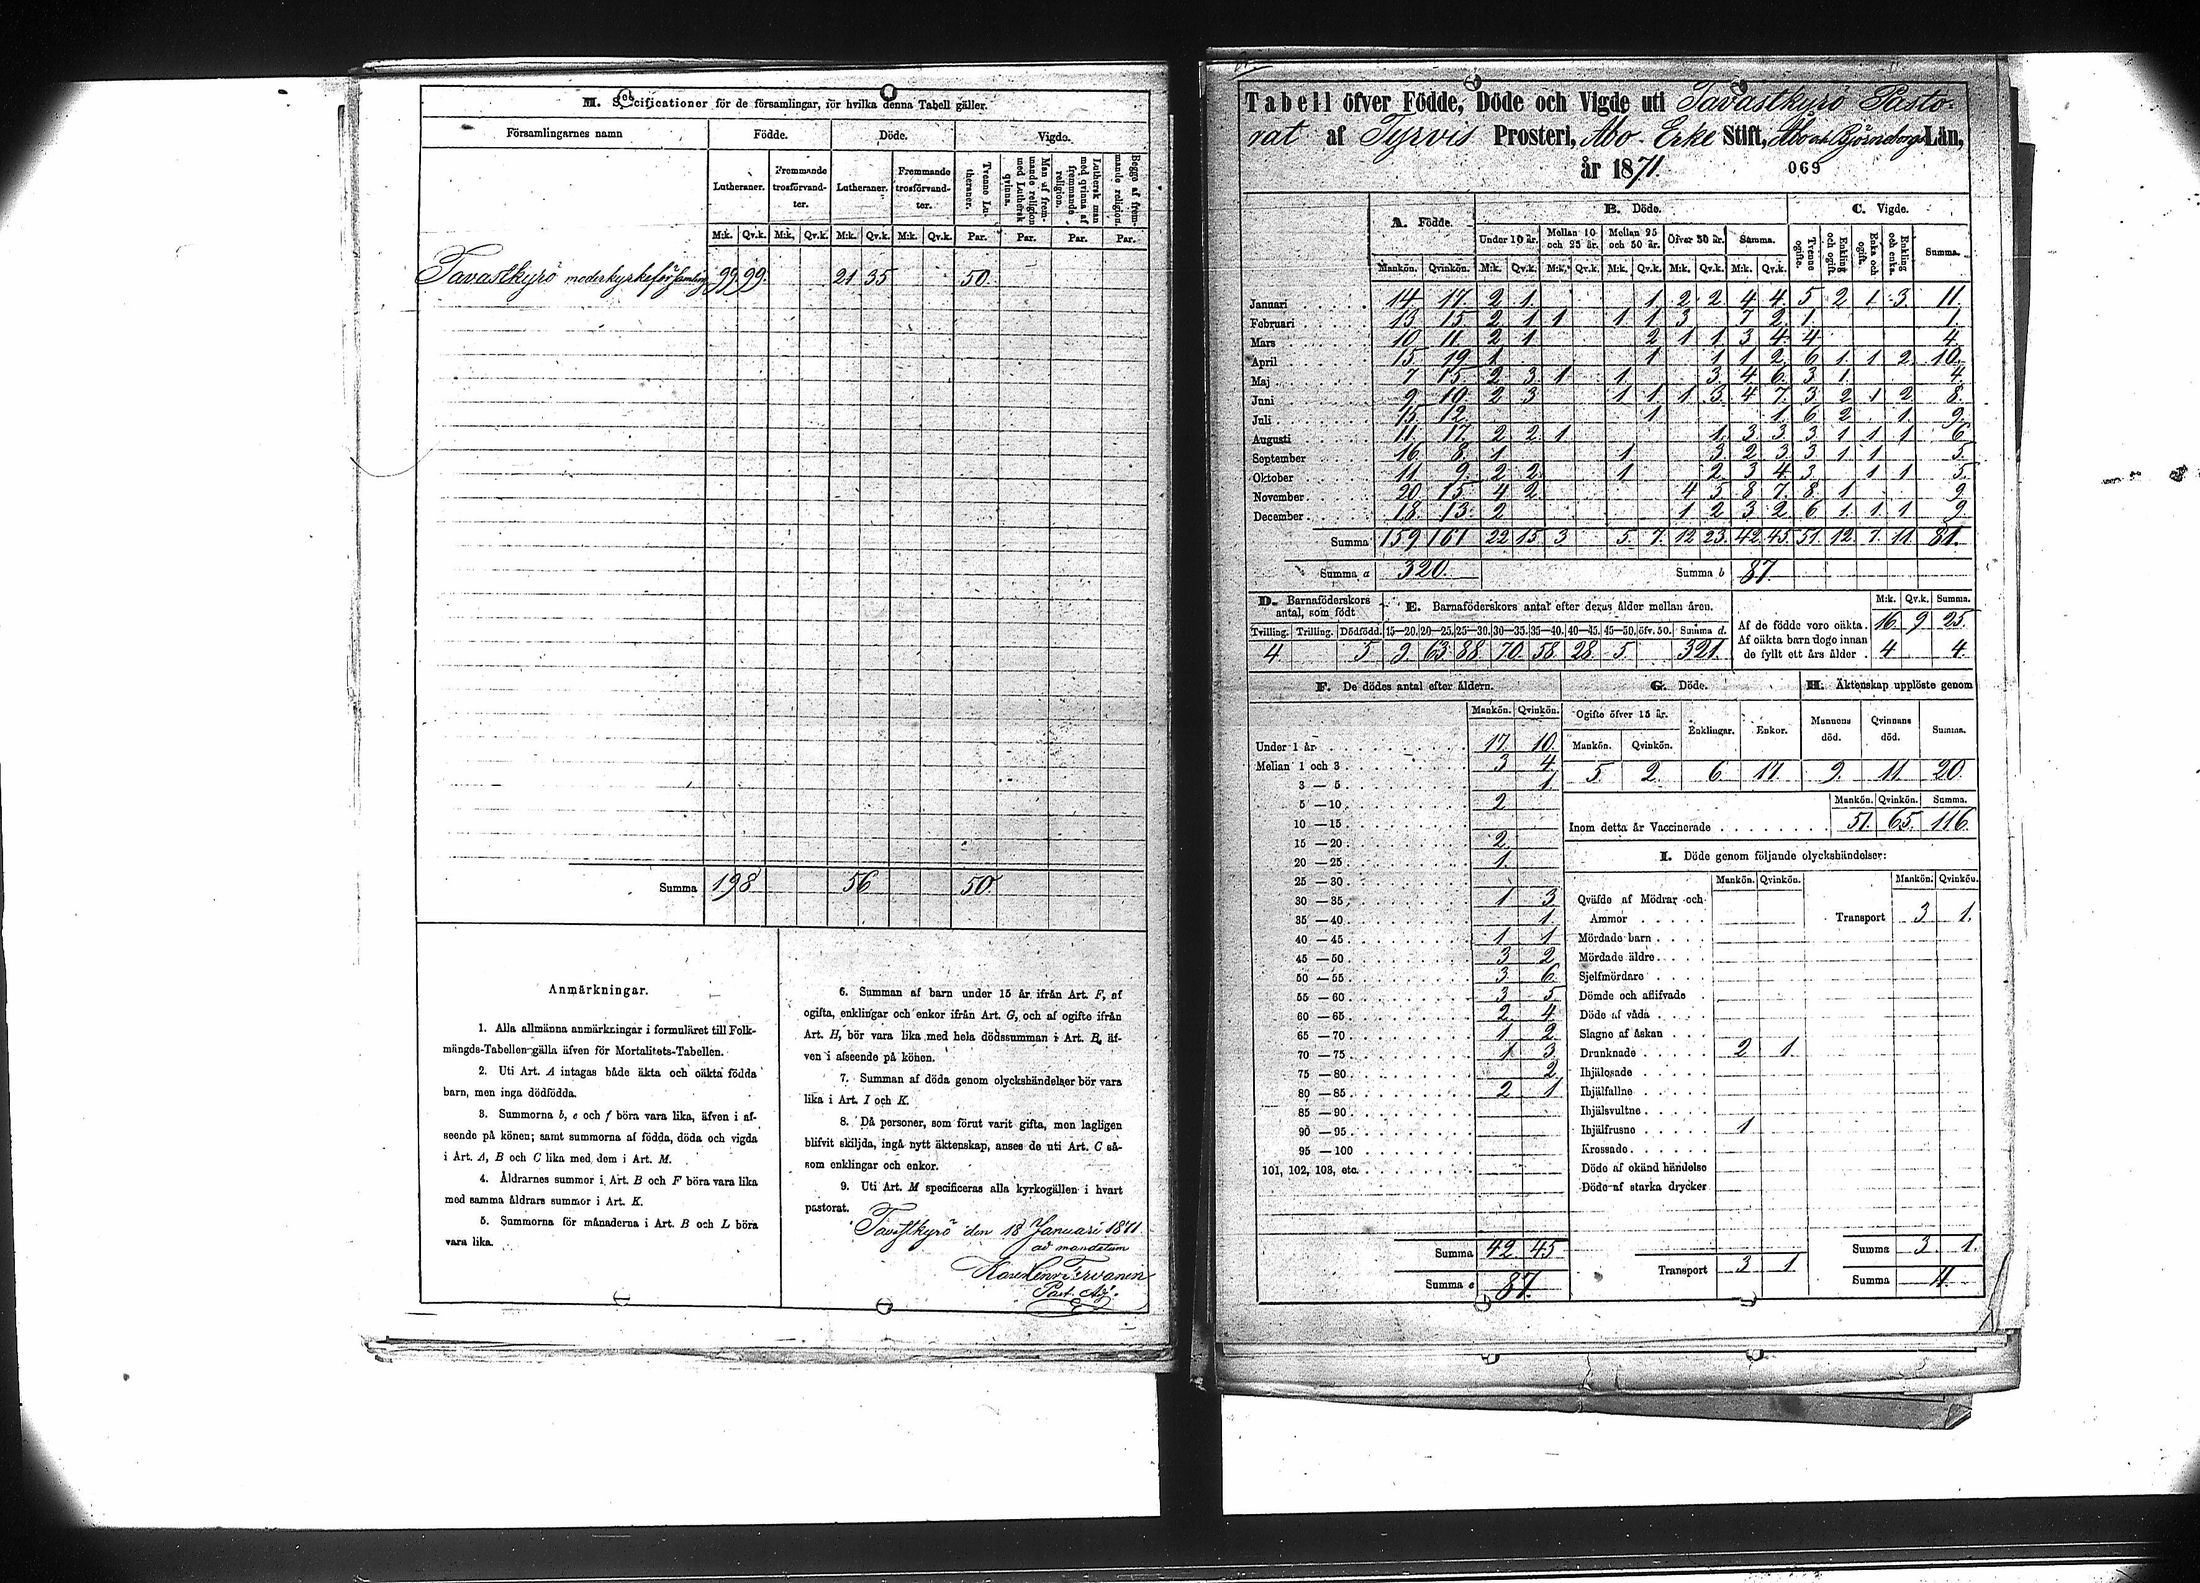 M. Specificationer för de församlingar, för hvilka denna Tabell gäller.
Församlingarnes namn Födde. Döde. Vigde.
Lutheraner. Fremmande trosförvandter. Lutheraner. Fremmande trosförvandter. Tvenne Lutheraner. Man af fremmande religion med Luthersk qvinna. Luthersk man med qvinna af fremmande religion. Begge af fremmande religion.
M:k. Qv.k. M:k. Qv.k. M:k. Qv.k. M:k. Qv.k. Par. Par. Par. Par.
Tavastkyrö moderkyrkoförsamling 99 99. 21 35 50.
Summa 198 56 50.
Anmärkningar.
1. Alla allmänna anmärkningar i formuläret till Folk-
mängds-Tabellen gälla äfven för Mortalitets-Tabellen.
2. Uti Art. A intagas både äkta och oäkta födda
barn, men inga dödfödda.
3. Summorna b, e och f böra vara lika, äfven i af-
seende på könen; samt summorna af födda, döda och vigda
i Art. A, B och C lika med dem i Art. M.
4. Åldrarnes summor i Art. B och F böra vara lika
med samma åldrars summor i Art. K.
5. Summorna för månaderna i Art. B och L böra
vara lika.
6. Summan af barn under 15 år ifrån Art. F, af
ogifta, enklingar och enkor ifrån Art. G, och af ogifte ifrån
Art. H, bör vara lika med hela dödssumman i Art. B, äf-
ven i afseende på könen.
7. Summan af döda genom olyckshändelser bör vara
lika i Art. I och K.
8. Då personer, som förut varit gifta, men lagligen
blifvit skiljda, ingå nytt äktenskap, anses de uti Art. C så-
som enklingar och enkor.
9. Uti Art. M specificeras alla kyrkogällen i hvart
pastorat.
Tavastkyrö den 18 Januari 1871
ad mandatum
Past. Adj.
Tabell öfver Födde, Döde och Vigde uti Tavastkyrö Pasto-
rat af Tyrvis Prosteri, Åbo Erke Stift, Åbo och Björneborgs Län,
år 1871. 069
A. Födde. B. Döde. C. Vigde.
Under 10 år. Mellan 10 och 25 år. Mellan 25 och 50 år. Öfver 50 år. Summa. Tvenne ogifte. Enkling och ogift. Enka och ogift. Enkling och enka. Summa.
Mankön. Qvinkön. M:k. Qv.k. M:k. Qv.k. M:k. Qv.k. M:k. Qv.k. M:k. Qv.k.
Januari 14 17. 2 1 1 2 2 4 4 5 2 1 3 11.
Februari 13 15 2 1 1 1 1 3 7 2 1. 1.
Mars 10 11 2 1 2 1 1 3 4 4 4.
April 15 19 1 1 1 1 2 6 1. 1 2 10.
Maj 7 15 2 3 1 1 3 4 6 3 1. 4
Juni 9 10 2 3 1 1 1 3 4 7 3 2 1 2 8.
Juli 15 12 1 1 6 2 1. 9.
Augusti 11 17. 2 2 1 1 3 3 3 1 1 1 6
September 16 8. 1 1 3 2 3 3 1 1 5.
Oktober 11 9. 2 2 1 2 3 4 3 1 1 5.
November 20 15 4 2 4 5 8 7. 8. 1 9
December 18. 13. 2 1 2 3 2 6 1. 1. 1 9
Summa 159 161 22 15 3 5 7 12 23 42 45 51. 12 7. 11 81.
Summa a 320. Summa b 87.
D. Barnaföderskors antal, som födt
E. Barnaföderskors antal efter deras ålder mellan åren.
M:k. Qv.k. Summa.
Tvilling. Trilling. Dödfödd. 15—20. 20—25. 25—30. 30—35. 35—40. 40—45. 45—50. öfv. 50. Summa d.
4 5 9 63 88 70. 58. 28 5 321.
Af de födde voro oäkta. 16. 9 25.
Af oäkta barn dogo innan
de fyllt ett års ålder 4 4.
F. De dödes antal efter åldern.
Mankön. Qvinkön.
Under 1 år 17. 10.
Mellan 1 och 3 3 4
3 — 5 1
5 — 10 2
10 — 15
15 — 20 2
20 — 25 1
25 — 30
30 — 35 1 3
35 — 40 1.
40 — 45 1 1
45 — 50 3 2
50 — 55 3 6
55 — 60 3 5
60 — 65 2 4
65 — 70 1 2
70 — 75 1 3
75 — 80 2
80 — 85 2 1
85 — 90
90 — 95
95 — 100
101, 102, 103, etc.
Summa 42 45
Summa e 87.
G. Döde.
Ogifte öfver 15 år. Enklingar. Enkor.
Mankön. Qvinkön.
5 2 6 17.
H. Äktenskap upplöste genom
Mannens död. Qvinnans död. Summa.
9. 11. 20.
Mankön. Qvinkön. Summa.
Inom detta år Vaccinerade 51. 65. 116.
I. Döde genom följande olyckshändelser:
Mankön. Qvinkön. Mankön. Qvinkön.
Qväfde af Mödrar och
Ammor Transport 3 1.
Mördade barn
Mördade äldre
Sjelfmördare
Dömde och aflifvade
Döde af våda
Slagne af åskan
Drunknade 2 1.
Ihjälosade
Ihjälfallne
Ihjälsvultne
Ihjälfrusne 1
Krossade
Döde af okänd händelse
Döde af starka drycker
Transport 3 1
Summa 3 1.
Summa 4.